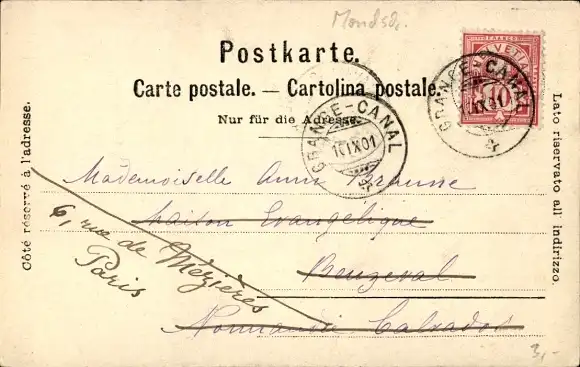 Postkarte.
Carte postale. — Cartolina postale.
Nur für die Adresse.
Côté réservé à l'adresse.
Lato riservato all' indirizzo.
FRANCO
HELVETIA
10
GRANGE-CANAL
GRANGE-CANAL
Mademoiselle Anna
Maison Evangélique
Beuzeval
Normandie Calvados
6, rue de Mézières
Paris
3,-